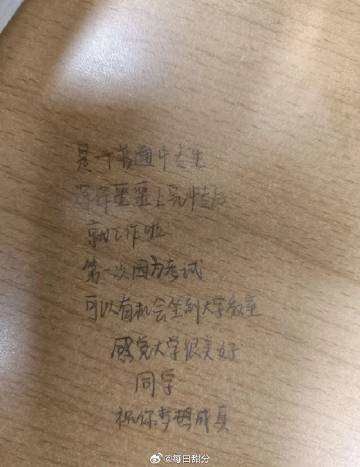 是一个普通中专生
浑浑噩噩上完中专后
就工作啦
第一次因为考试
可以有机会坐到大学教室
感觉大学很美好
同学
祝你梦想成真
@每日甜分